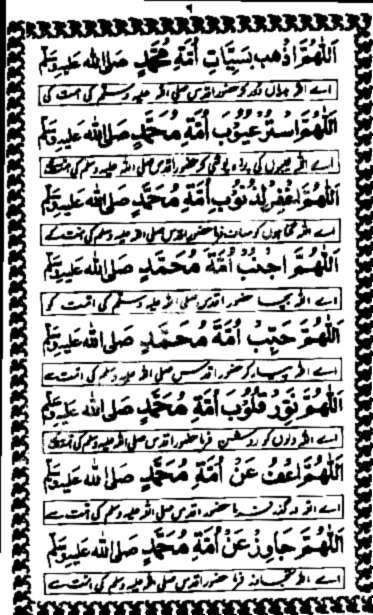 ٩
اَللّٰهُمَّ اذْهَبْ سَيِّئَاتِ اُمَّةِ مُحَمَّدٍ صَلَى الله عَلَيهِ وَسَلَّم
اے اللہ برائیاں دور کر حضور اقدس صلی اللہ علیہ وسلم کی امت کی
اَللّٰهُمَّ اسْتُرْ عُيُوْبَ اُمَّةِ مُحَمَّدٍ صَلَى الله عَلَيهِ وَسَلَّم
اے اللہ عیبوں کی پردہ پوشی کر حضور اقدس صلی اللہ علیہ وسلم کی امت کے
اَللّٰهُمَّ اغْفِرْ لِذُنُوْبِ اُمَّةِ مُحَمَّدٍ صَلَى الله عَلَيهِ وَسَلَّم
اے اللہ گناہوں کو معاف فرما حضور اقدس صلی اللہ علیہ وسلم کی امت کے
اَللّٰهُمَّ اجْنُبْ اُمَّةَ مُحَمَّدٍ صَلَى الله عَلَيهِ وَسَلَّم
اے اللہ بچا حضور اقدس صلی اللہ علیہ وسلم کی امت کو
اَللّٰهُمَّ حَبِّبْ اُمَّةَ مُحَمَّدٍ صَلَى الله عَلَيهِ وَسَلَّم
اے اللہ پیار کر حضور اقدس صلی اللہ علیہ وسلم کی امت سے
اَللّٰهُمَّ نَوِّرْ قُلُوْبَ اُمَّةِ مُحَمَّدٍ صَلَى الله عَلَيهِ وَسَلَّم
اے اللہ دلوں کو روشن فرما حضور اقدس صلی اللہ علیہ وسلم کی امت کے
اَللّٰهُمَّ اعْفُ عَنْ اُمَّةِ مُحَمَّدٍ صَلَى الله عَلَيهِ وَسَلَّم
اے اللہ درگذر فرما حضور اقدس صلی اللہ علیہ وسلم کی امت سے
اَللّٰهُمَّ جَاوِزْ عَنْ اُمَّةِ مُحَمَّدٍ صَلَى الله عَلَيهِ وَسَلَّم
اے اللہ فرما حضور اقدس صلی اللہ علیہ وسلم کی امت سے